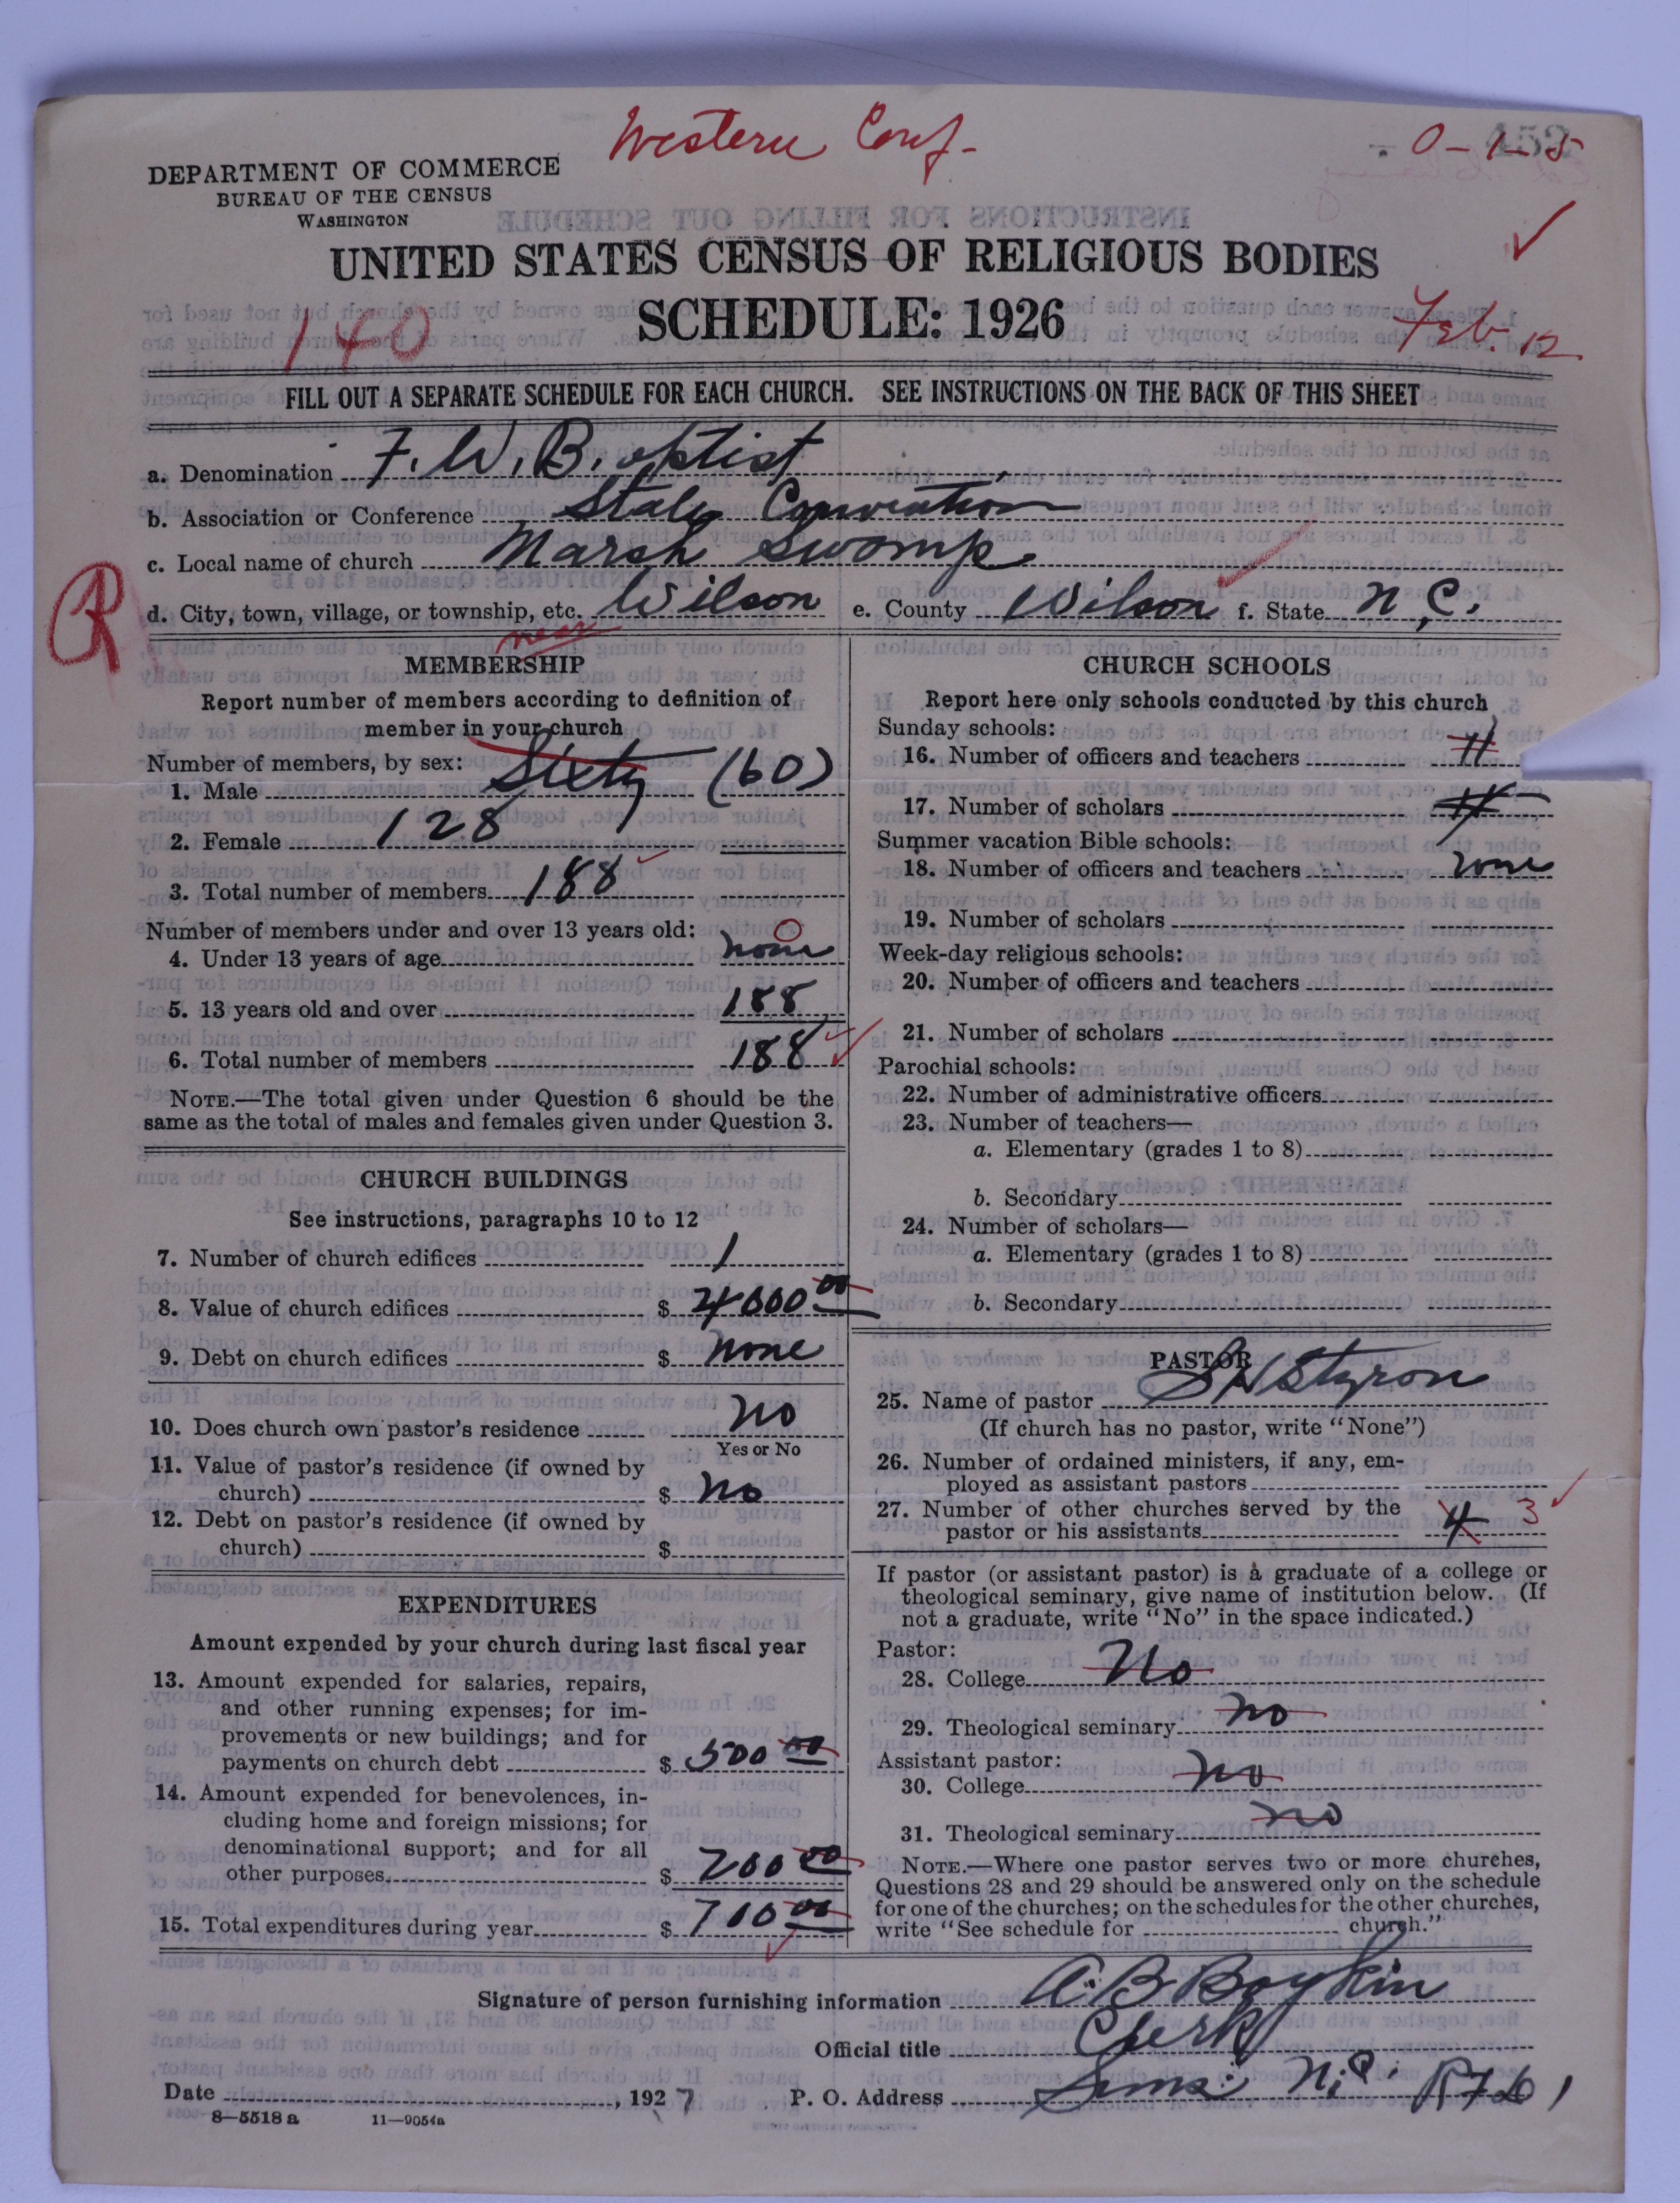 Western Conf.
0-1-5
DEPARTMENT OF COMMERCE
BUREAU OF THE CENSUS
WASHINGTON
UNITED STATES CENSUS OF RELIGIOUS BODIES
SCHEDULE: 1926
140
Feb. 12
FILL OUT A SEPARATE SCHEDULE FOR EACH CHURCH. SEE INSTRUCTIONS ON THE BACK OF THIS SHEET
a. Denomination F. W. B. aptist
b. Association or Conference State Convention
c. Local name of church Marsh Swamp
R
d. City, town, village, or township, etc. Wilson e. County Wilson f. State N.C.
near
MEMBERSHIP
Report number of members according to definition of
member in your church
Number of members, by sex:
1. Male Sixty (60)
2. Female 128
3. Total number of members 188
Number of members under and over 13 years old:
4. Under 13 years of age none 0
5. 13 years old and over 188
6. Total number of members 188
NOTE.—The total given under Question 6 should be the
same as the total of males and females given under Question 3.
CHURCH BUILDINGS
See instructions, paragraphs 10 to 12
7. Number of church edifices 1
8. Value of church edifices $ 4000 00
9. Debt on church edifices $ none
10. Does church own pastor's residence no
Yes or No
11. Value of pastor's residence (if owned by
church) $ no
12. Debt on pastor's residence (if owned by
church) $
EXPENDITURES
Amount expended by your church during last fiscal year
13. Amount expended for salaries, repairs,
and other running expenses; for im-
provements or new buildings; and for
payments on church debt $ 500 00
14. Amount expended for benevolences, in-
cluding home and foreign missions; for
denominational support; and for all
other purposes $ 200 00
15. Total expenditures during year $ 700 00
CHURCH SCHOOLS
Report here only schools conducted by this church
Sunday schools:
16. Number of officers and teachers
17. Number of scholars
Summer vacation Bible schools:
18. Number of officers and teachers none
19. Number of scholars
Week-day religious schools:
20. Number of officers and teachers
21. Number of scholars
Parochial schools:
22. Number of administrative officers
23. Number of teachers—
a. Elementary (grades 1 to 8)
b. Secondary
24. Number of scholars—
a. Elementary (grades 1 to 8)
b. Secondary
PASTOR
25. Name of pastor S H Styron
(If church has no pastor, write "None")
26. Number of ordained ministers, if any, em-
ployed as assistant pastors
27. Number of other churches served by the
pastor or his assistants 4 3
If pastor (or assistant pastor) is a graduate of a college or
theological seminary, give name of institution below. (If
not a graduate, write "No" in the space indicated.)
Pastor:
28. College No
29. Theological seminary no
Assistant pastor:
30. College no
31. Theological seminary no
NOTE.—Where one pastor serves two or more churches,
Questions 28 and 29 should be answered only on the schedule
for one of the churches; on the schedules for the other churches,
write "See schedule for church."
Signature of person furnishing information A. B Boykin
Official title Clerk
Date , 1927 P. O. Address Sims N.C. R F D 1
8—5518 a 11—9054a